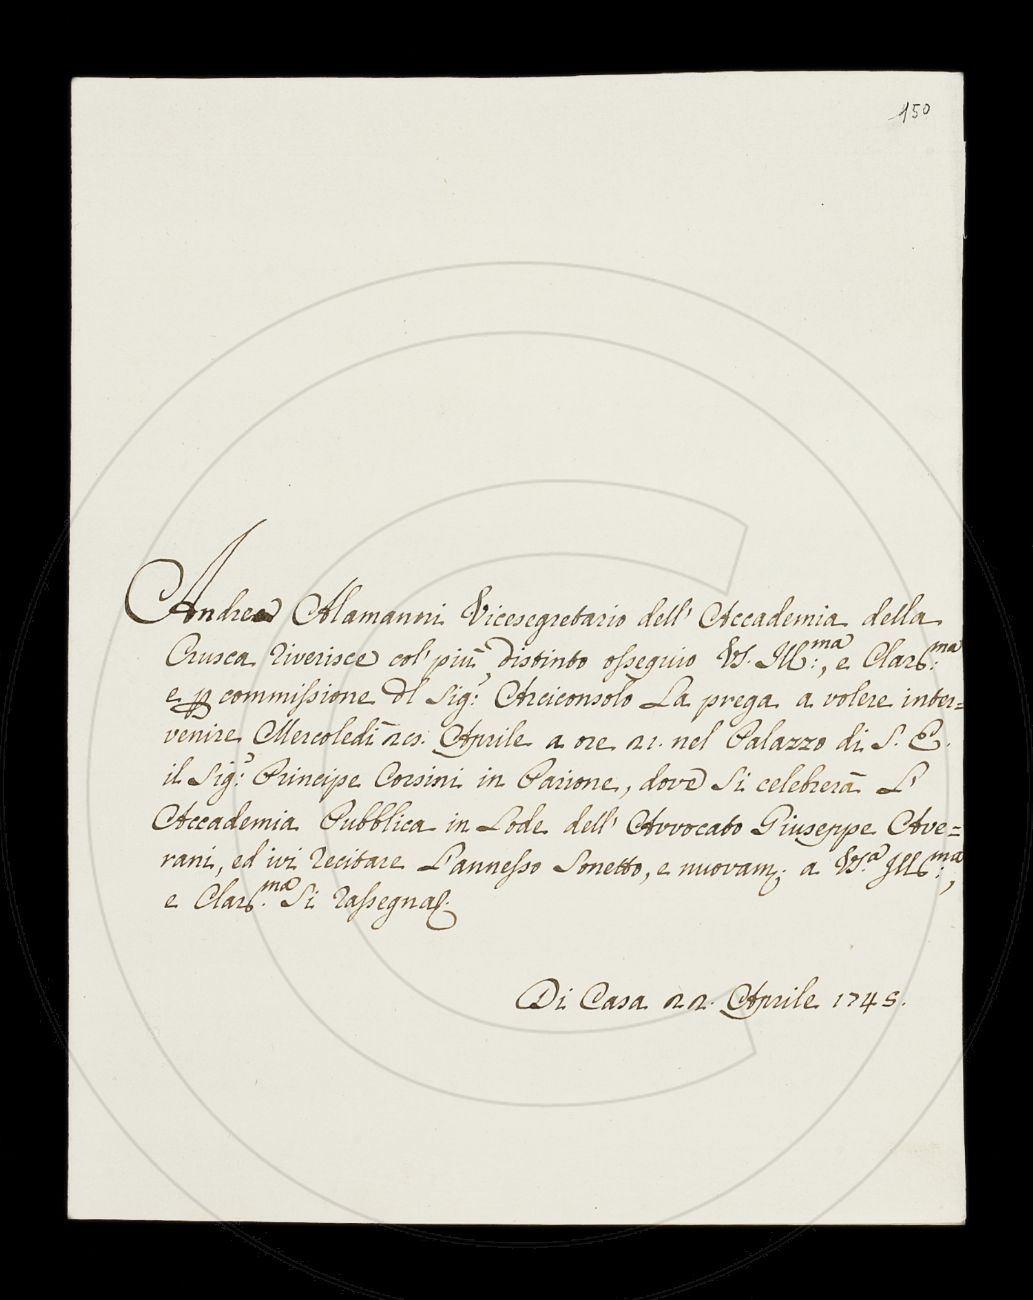 150
Andrea Alamanni Vicesegretario dell' Accademia della
Crusca riverisce col' più distinto ossequio VS. Ill:ma, e Clar:ma
e p commissione dl Sig: Arciconsolo La prega a volere inter=
venire Mercoledì 28. Aprile a ore 21. nel Palazzo di S. E.
il Sig: Principe Corsini in Parione, dove si celebrerà L'
Accademia Pubblica in Lode dell' Avvocato Giuseppe Ave=
rani, ed ivi recitare L'annesso Sonetto, e nuovam. a VS.a Ill:ma,
e Clar:ma Si rassegna.
Di Casa 22. Aprile 1745.